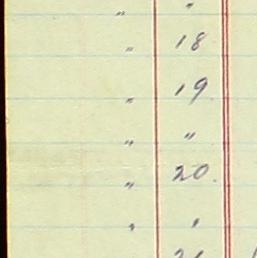 " "
" 18
" 19
" "
" 20
" "